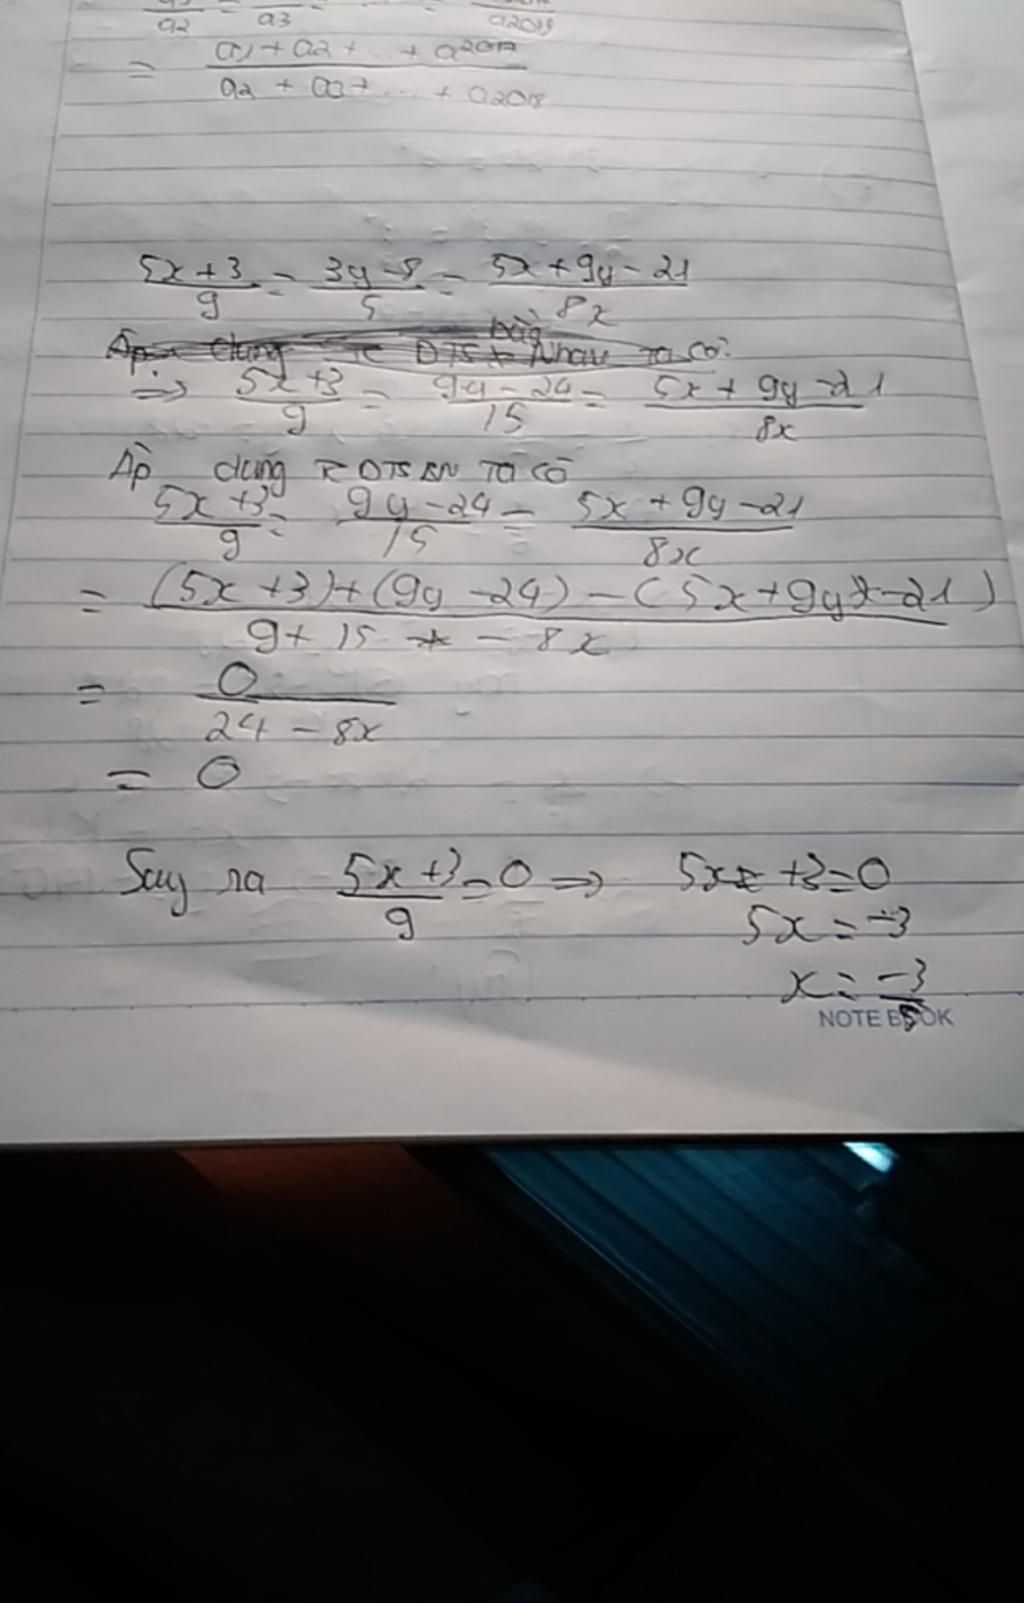 a2 = a3 = = a2018
= a1 + a2 + ... + a2017 / a2 + a3 + ... + a2018
5x+3/9 = 3y-8/5 = 5x+9y-21/8x
Áp dụng TC DTS bằng Nhau Ta có:
=> 5x+3/9 = 9y-24/15 = 5x+9y-21/8x
Áp dụng TC DTSBN Ta có
5x+3/9 = 9y-24/15 = 5x+9y-21/8x
= (5x+3)+(9y-24)-(5x+9y-21) / 9+15-8x
= 0/24-8x
= 0
Suy ra 5x+3/9 = 0 => 5x+3=0
5x = -3
x = -3/5
NOTE BOOK